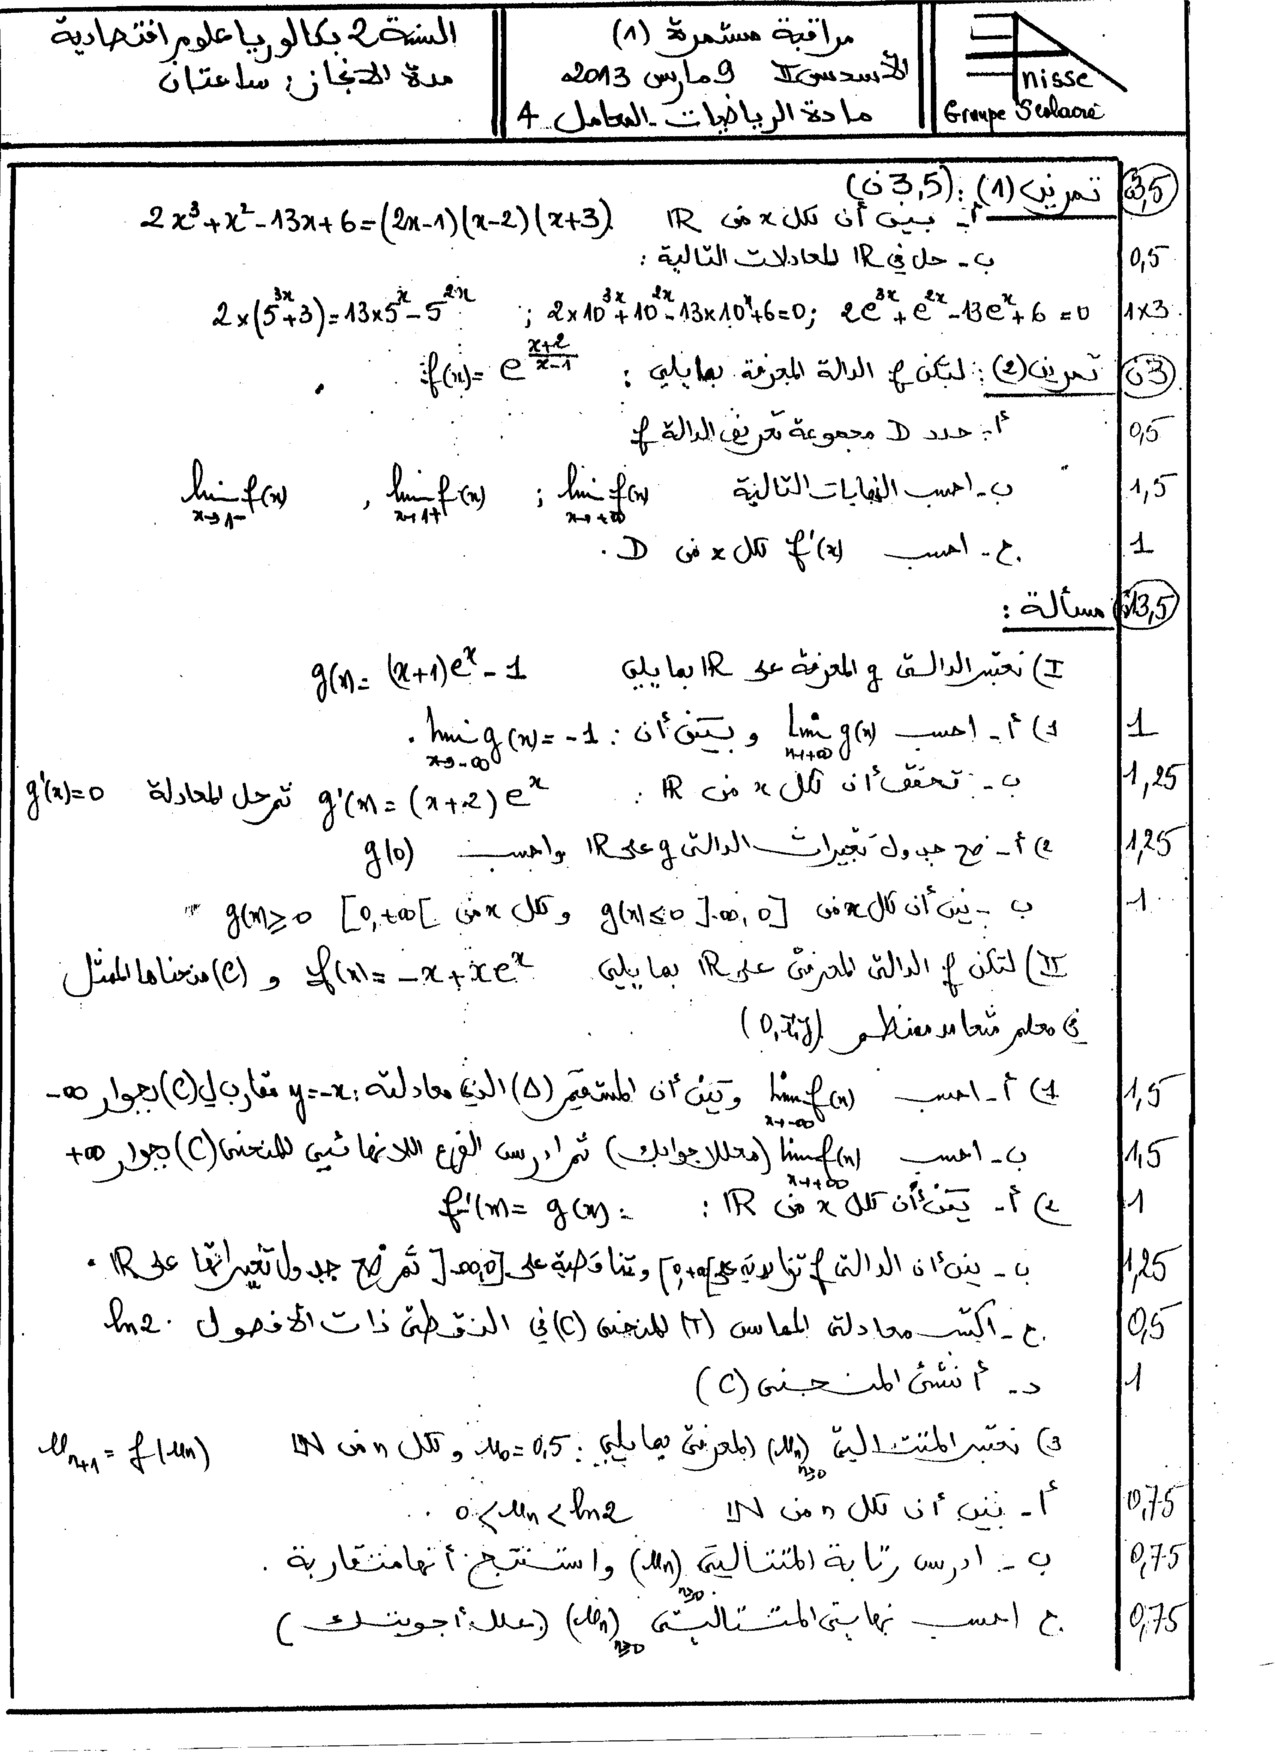 السنة 2 بكالوريا علوم اقتصادية
مدة الانجاز: ساعتان
مراقبة مستمرة (1)
الأسدس II 9 مارس 2013
مادة الرياضيات - المعامل 4
nisse
Groupe Scolaire
3,5ن تمرين (1): (3,5 ن)
أ- بين أن لكل x من IR 2x³+x²-13x+6=(2x-1)(x-2)(x+3)
ب- حل في IR المعادلات التالية: 0,5
2e^{3x}+e^{2x}-13e^x+6=0 ; 2×10^{3x}+10^{2x}-13×10^x+6=0 ; 2×(5^{3x}+3)=13×5^x-5^{2x} 1×3
3ن تمرين (2): لتكن f الدالة المعرفة بما يلي: f(x)=e^{\frac{x+2}{x-1}}
أ- حدد D مجموعة تعريف الدالة f 0,5
ب- احسب النهايات التالية lim_{x→+∞} f(x) ; lim_{x→1+} f(x) , lim_{x→1-} f(x) 1,5
ج- احسب f'(x) لكل x من D. 1
13,5ن مسألة:
I) نعتبر الدالة g المعرفة على IR بما يلي g(x)=(x+1)e^x-1
1) أ- احسب lim_{x→+∞} g(x) و بين أن: lim_{x→-∞} g(x)=-1. 1
ب- تحقق أن لكل x من IR: g'(x)=(x+2)e^x ثم حل المعادلة g'(x)=0 1,25
2) أ- ضع جدول تغيرات الدالة g على IR واحسب g(0) 1,25
ب- بين أن لكل x من ]-∞,0] g(x)≤0 و لكل x من [0,+∞[ g(x)≥0 1
II) لتكن f الدالة المعرفة على IR بما يلي f(x)=-x+xe^x و (C) منحناها الممثل
في معلم متعامد ممنظم (0,i,j)
1) أ- احسب lim_{x→-∞} f(x) و بين أن المستقيم (Δ) الذي معادلته: y=-x مقارب ل(C) بجوار -∞ 1,5
ب- احسب lim_{x→+∞} f(x) (معللا جوابك) ثم ادرس الفرع اللانهائي للمنحنى (C) بجوار +∞ 1,5
2) أ- بين أن لكل x من IR: f'(x)=g(x). 1
ب- بين أن الدالة f تزايدية على [0,+∞[ و تناقصية على ]-∞,0] ثم ضع جدول تغيراتها على IR. 1,25
ج- اكتب معادلة المماس (T) للمنحنى (C) في النقطة ذات الأفصول ln2. 0,5
د- أنشئ المنحنى (C) 1
3) نعتبر المتتالية (u_n)_{n≥0} المعرفة بما يلي: u_0=0,5 و لكل n من IN u_{n+1}=f(u_n)
أ- بين أن لكل n من IN 0<u_n<ln2. 0,75
ب- ادرس رتابة المتتالية (u_n)_{n≥0} واستنتج أنها متقاربة. 0,75
ج احسب نهاية المتتالية (u_n)_{n≥0} (علل أجوبتك) 0,75